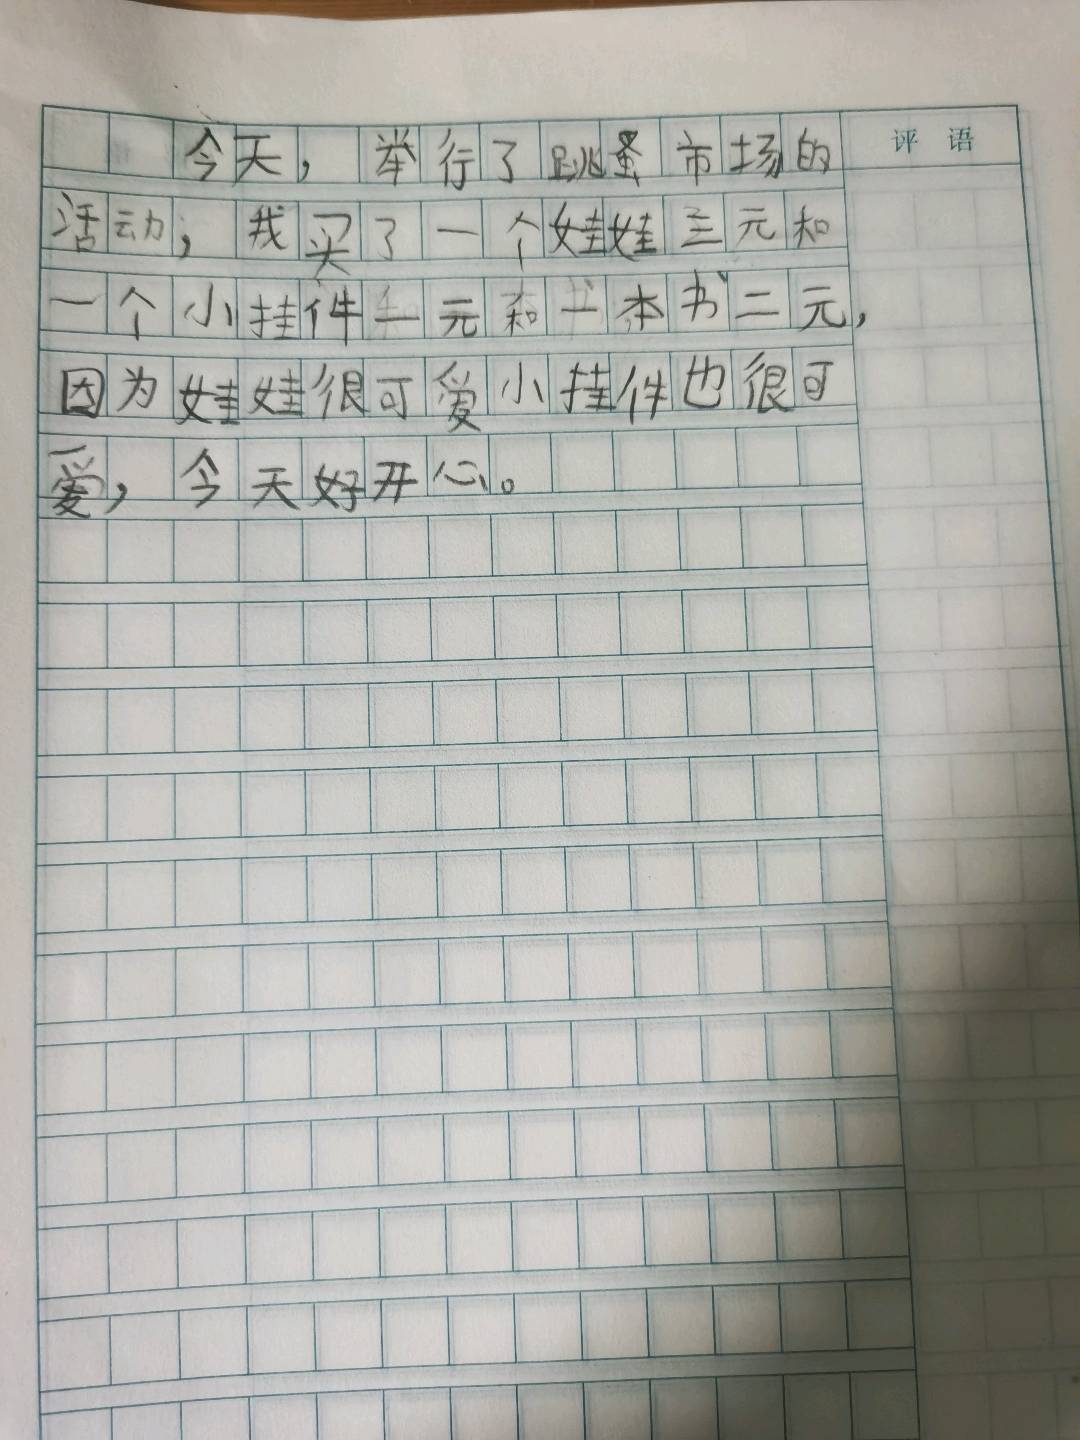 今天，举行了跳蚤市场的
评语
活动，我买了一个娃娃三元和
一个小挂件一元和一本书二元，
因为娃娃很可爱小挂件也很可
爱，今天好开心。